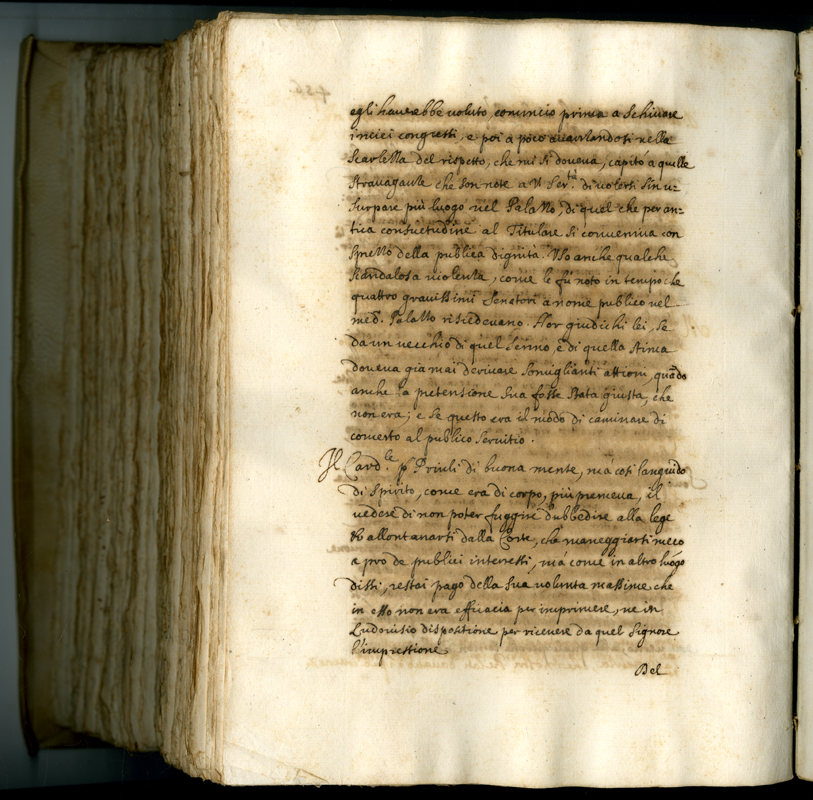 egli hauerebbe uoluto, comincio prima a schiuare
i miei congressi, e poi a poco auanzandosi nella
scarsezza del rispetto, che mi si doueua, capitò a quelle
strauaganze che son note a V. Ser.tà di uolersi sin u=
surpare più luogo nel Palazzo, di quel che per an=
tica consuetudine al Titulare si conueniua con
spretto della publica dignità. Vsò anche qualche
scandalosa uiolenza, come le fù noto in tempo che
quattro grauissimi Senatori a nome publico nel
med. Palazzo risiedeuano. Hor giudichi lei, se
da un uecchio di quel senno, e di quella stima
doueua gia mai deriuare somiglianti attioni, quãdo
anche la pretensione sua fosse stata giusta, che
non era; e se questo era il modo di caminare di
concerto al publico seruitio.
Il Card.le Priuli di buona mente, mà così languido
di spirito, come era di corpo, più premeua, il
uedere di non poter fuggire d'ubbedire alla lege
allontanarsi dalla Corte, che maneggiarsi meco
a pro de publici interessi, mà come in altro luogo
dissi, restai pago della sua uolunta massime che
in esso non era efficacia per imprimere, ne in
Ludouisio dispositione per riceuere da quel Signore
l'impressione.
Del